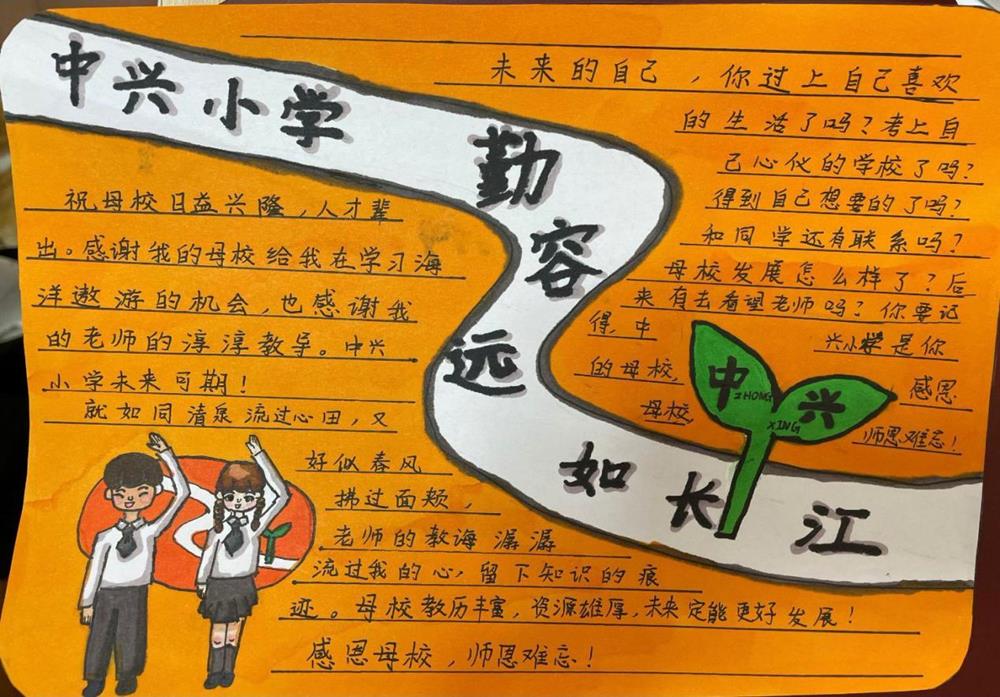 中兴小学
勤容
远
如长江
祝母校日益兴隆，人才辈
出。感谢我的母校给我在学习海
洋遨游的机会，也感谢我
的老师的淳淳教导。中兴
小学未来可期！
就如同清泉流过心田，又
好似春风
拂过面颊，
老师的教诲潺潺
流过我的心，留下知识的痕
迹。母校教历丰富，资源雄厚，未来定能更好发展！
感恩母校，师恩难忘！
未来的自己，你过上自己喜欢
的生活了吗？考上自
己心仪的学校了吗？
得到自己想要的了吗？
和同学还有联系吗？
母校发展怎么样了？后
来有去看望老师吗？你要记
得，中兴小学是你
的母校，感恩
母校，师恩难忘！
中兴
ZHONG
XING